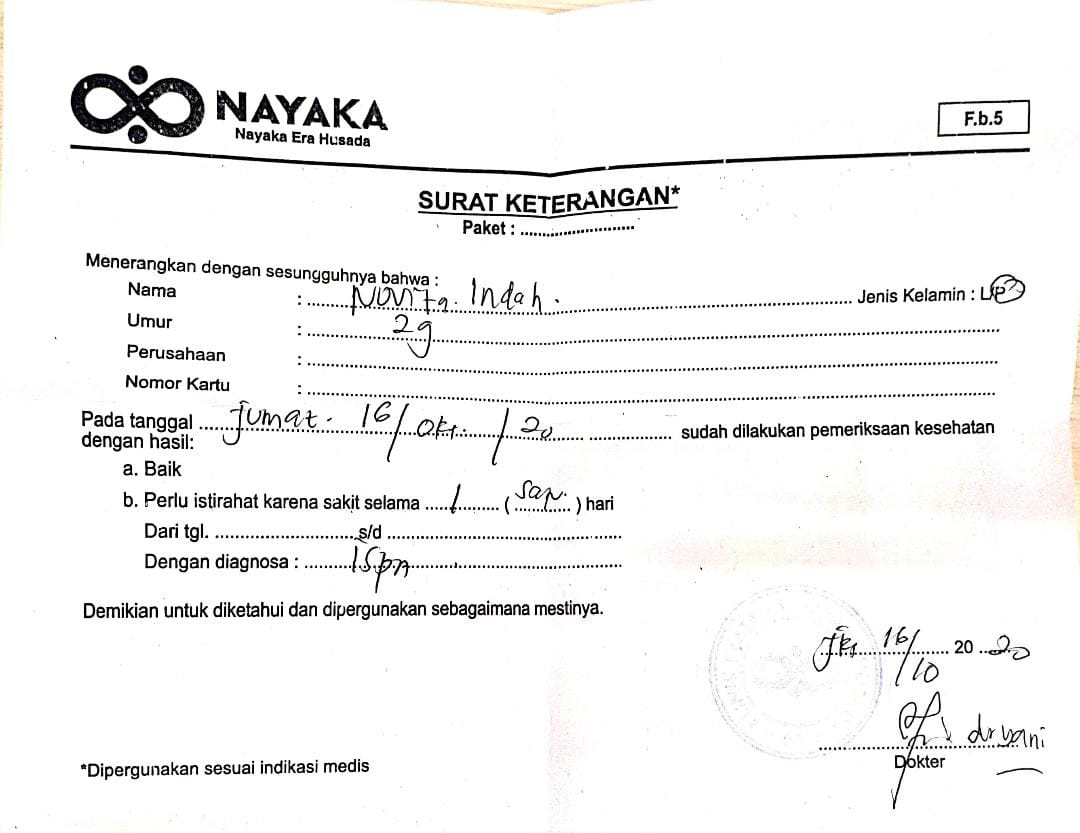 NAYAKA
Nayaka Era Husada
F.b.5
SURAT KETERANGAN*
Paket : ............................
Menerangkan dengan sesungguhnya bahwa :
Nama : Novita. Indah. Jenis Kelamin : L/P
Umur : 29
Perusahaan : ............................
Nomor Kartu : ............................
Pada tanggal Jumat. 16/Okt./20 sudah dilakukan pemeriksaan kesehatan
dengan hasil:
a. Baik
b. Perlu istirahat karena sakit selama ...1... ( ) hari
Dari tgl. ............................ s/d ............................
Dengan diagnosa : ISPA
Demikian untuk diketahui dan dipergunakan sebagaimana mestinya.
Jkt 16/10 2020
dr yani
Dokter
*Dipergunakan sesuai indikasi medis